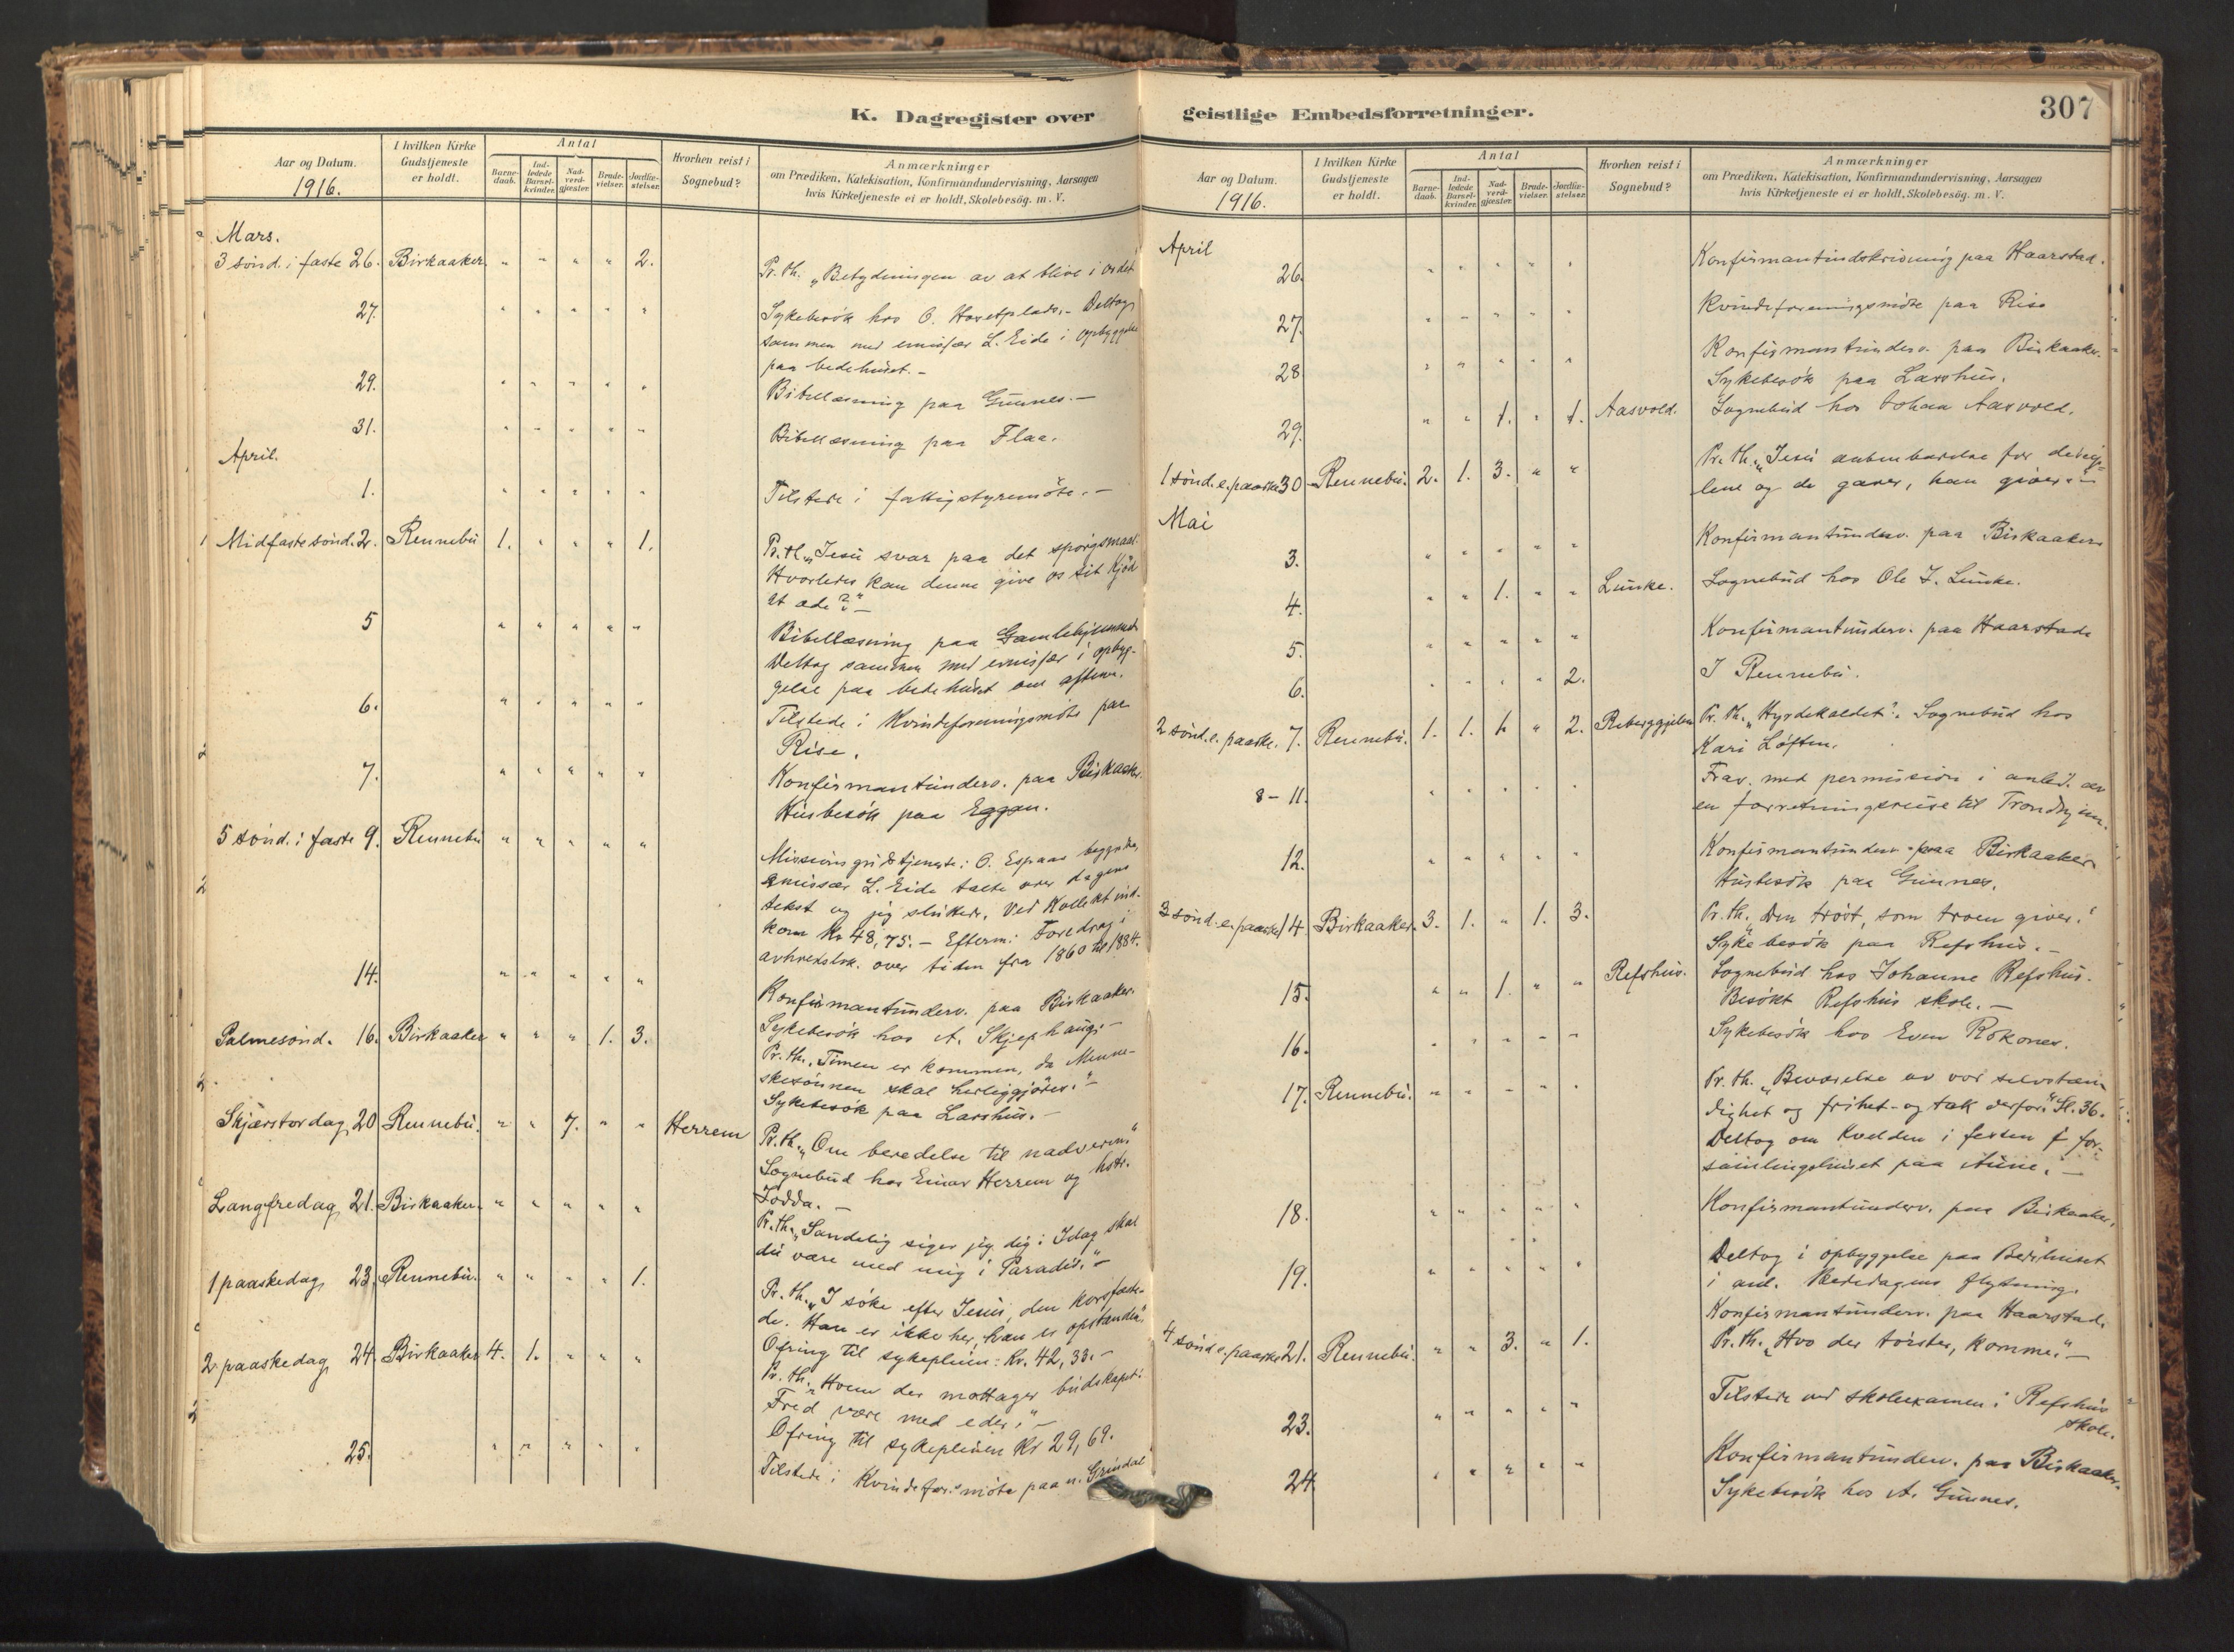 K. Dagregister over
Aar og Datum.
1916.
I hvilken Kirke
Gudstjeneste
er holdt.
Antal
Barne-
daab.
Ind-
ledede
Barsel-
kvinder.
Nad-
verd-
gjæster.
Brude-
vielser.
Jordfæ-
stelser.
Hvorhen reist i
Sognebud?
Anmærkninger
om Prædiken, Katekisation, Konfirmandundervisning, Aarsagen
hvis Kirketjeneste ei er holdt, Skolebesög. m. V.
Mars.
3 sönd. i faste 26. Birkaaker. " " " " 2. Pr. th. „Betydningen av at blive i ordet
27. " " " " " Sykebesök hos O. Hovetplads. - Deltog
sammen med emisfær L. Eide i opbyggelse
paa bedehuset. -
29. " " " " " Bibellæsning paa Gunnes. -
31. " " " " " Bibellæsning paa Flaa.
April.
1. " " " " " Tilstede i fattigstyremöte. -
Midfastesönd. 2. Rennebu 1. " " " 1. Pr. th. „Jesu svar paa det spörgsmaal:
Hvorledes kan denne give os sit kjöd
at æde?" -
5 " " " " " Bibellæsning paa Gamlehjemmet
Deltog sammen med emisfær i opbyg-
gelse paa bedehuset om aftenen.
6. " " " " " Tilstede i Kvindeforeningsmöte paa
Rise.
7. " " " " " Konfirmantunderv. paa Birkaaker.
Husbesök paa Eggan.
5 sönd. i faste 9. Rennebu " " " " " Missionsgudstjeneste: O. Espaas begyndte,
emissær L. Eide talte over dagens
tekst og jeg sluttede. Ved Kollekt ind-
kom Kr 48,75. - Efterm: Foredrag i
avholdslok. over tiden fra 1860 til 1884.
14. " " " " " Konfirmantunderv. paa Birkaaker.
Sykebesök hos A. Skjephaug. -
Palmesönd. 16. Birkaaker " " " 1. 3. Pr. th. „Timen er kommen, da Menne-
skesönnen skal herliggjöres." -
Sykebesök paa Larshus. -
Skjærstordag 20 Rennebu. " " 7. " " Herrem Pr. th. „Om beredelse til nadveren."
Sognebud hos Einar Herrem og hstr.
Lodda. -
Langfredag 21. Birkaaker. " " " " " Pr. th. „Sandelig siger jeg dig: Idag skal
du være med mig i Paradis." -
1 paaskedag 23. Rennebu. " " " " 1. Pr. th. „I söke efter Jesus, den korsfæste-
de. Han er ikke her, han er opstanden."
Ofring til sykepleien: Kr. 42,33. -
2. paaskedag 24. Birkaaker 4. 1. " " " Pr. th. „Hvem der mottager budskapet:
Fred være med eder." -
Ofring til sykepleien Kr 29,69.
25. " " " " " Tilstede i Kvindefor.s möte paa n. Grindal
geistlige Embedsforretninger.
307
Aar og Datum.
1916.
I hvilken Kirke
Gudstjeneste
er holdt.
Antal
Barne-
daab.
Ind-
ledede
Barsel-
kvinder.
Nad-
verd-
gjæster.
Brude-
vielser.
Jordfæ-
stelser.
Hvorhen reist i
Sognebud?
Anmærkninger
om Prædiken, Katekisation, Konfirmandundervisning, Aarsagen
hvis Kirketjeneste ei er holdt, Skolebesög. m. V.
April
26. " " " " " Konfirmantindskrivning paa Haarstad.
27. " " " " " Kvindeforeningsmöte paa Rise
28 " " " " " Konfirmantunderv. paa Birkaaker.
Sykebesök paa Larshus.
29. " " 1. " 1. Aasvold. Sognebud hos Johan Aasvold.
1 sönd. e. paaske 30 Rennebu. 2. 1. 3. " " Pr. th. „Jesu aabenbarelse for disip-
lene og de gaver, han giver." -
Mai
3. " " " " " Konfirmantunderv. paa Birkaaker.
4. " " 1. " " Lunke. Sognebud hos Ole J. Lunke.
5. " " " " " Konfirmantunderv. paa Haarstad.
6. " " " " 2. I Rennebu.
2 sönd. e. paaske. 7. Rennebu. 1. 1. 1. " 2. Reberggjelen Pr. th. „Hyrdekaldet". Sognebud hos
Kari Löften.
8 - 11. " " " " " Frav. med permission i anled. av
en forretningsreise til Trondhjem.
12. " " " " " Konfirmantunderv. paa Birkaaker.
Husbesök paa Gunnes.
3 sönd. e. paaske 14. Birkaaker. 3. 1. " 1. 3. Pr. th. „Den tröst, som troen giver."
Sykebesök paa Refshus. -
15. " " 1. " " Refshus. Sognebud hos Johanne Refshus.
Besökt Refshus skole. -
16. " " " " " Sykebesök hos Even Rokones.
17. Rennebu. " " " " " Pr. th. „Bevarelse av vor selvstæn-
dighet og frihet - og tak derfor." Sl. 36.
Deltog om kvelden i festen i for-
samlingshuset paa Aune. -
18. " " " " " Konfirmantunderv. paa Birkaaker.
19. " " " " " Deltog i opbyggelse paa Bedehuset
i anl. Bededagens flytning.
Konfirmantunderv. paa Haarstad.
4 sönd. e. paaske 21. Rennebu. " " 3. " 1. Pr. th. „Hvo der törster, komme." -
23. " " " " " Tilstede ved skoleexamen i Refshus
skole.
24. " " " " " Konfirmantunderv. paa Birkaaker.
Sykebesök hos A. Gunnes.